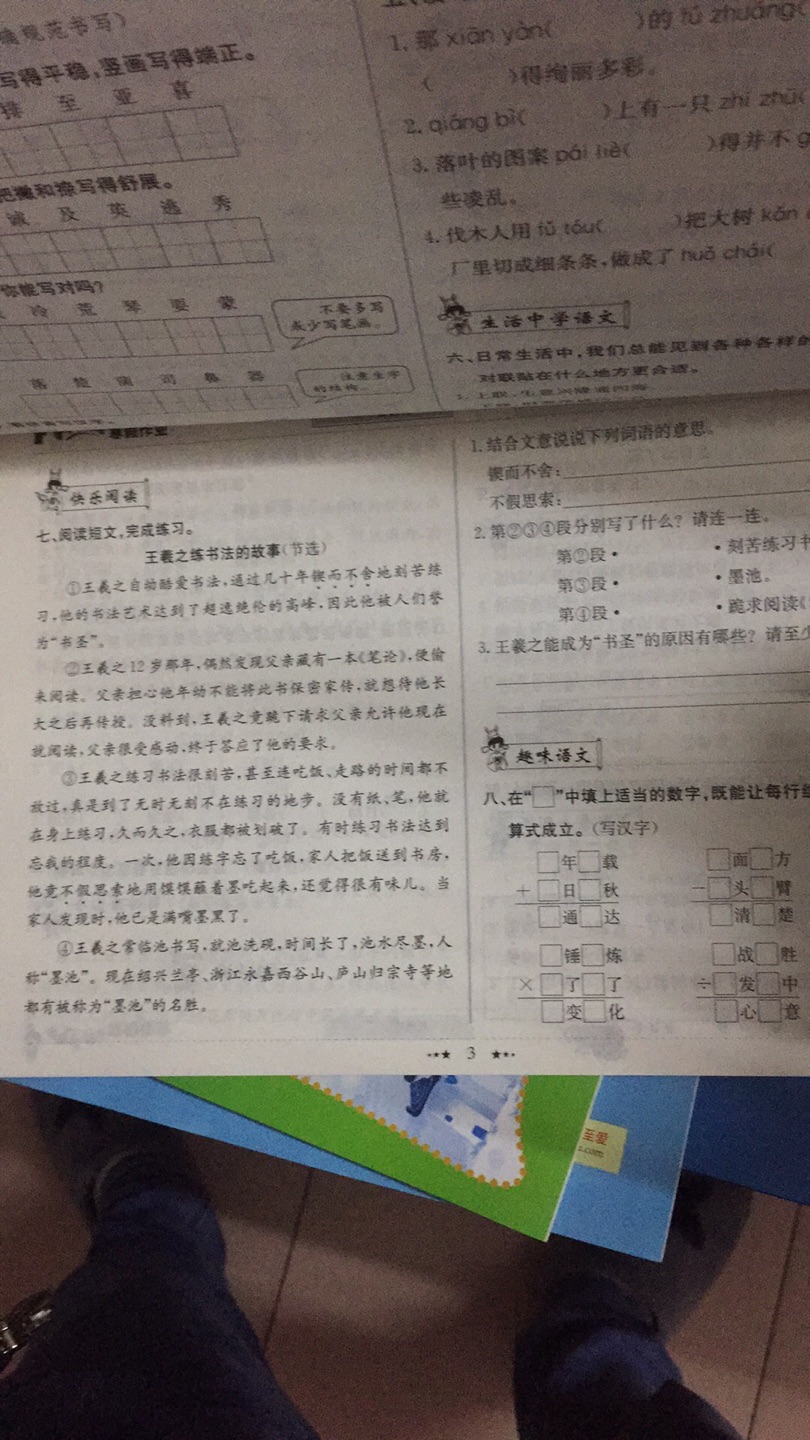 确规范书写）
写得平稳，竖画写得端正。
排 至 亚 喜
把撇和捺写得舒展。
诚 及 英 逃 秀
你能写对吗？
冷 荒 琴 要 蒙
不要多写
或少写笔画。
落 旋 司 暴 器
注意生字
的结构。
1. 那 xiān yàn( )的 fú zhuāng(
( )得绚丽多彩。
2. qiáng bì( )上有一只 zhī zhū(
3. 落叶的图案 pái liè( )得并不 g
些凌乱。
4. 伐木人用 fǔ tóu( )把大树 kǎn
厂里切成细条条，做成了 huǒ chái(
生活中学语文
六、日常生活中，我们总能见到各种各样的
对联贴在什么地方更合适。
寒假作业
快乐阅读
七、阅读短文，完成练习。
王羲之练书法的故事(节选)
①王羲之自幼酷爱书法，通过几十年锲而不舍地刻苦练
习，他的书法艺术达到了超逸绝伦的高峰，因此他被人们誉
为“书圣”。
②王羲之12岁那年，偶然发现父亲藏有一本《笔论》，便偷
来阅读。父亲担心他年幼不能将此书保密家传，就想待他长
大之后再传授。没料到，王羲之竟跪下请求父亲允许他现在
就阅读，父亲很受感动，终于答应了他的要求。
③王羲之练习书法很刻苦，甚至连吃饭、走路的时间都不
放过，真是到了无时无刻不在练习的地步。没有纸、笔，他就
在身上练习，久而久之，衣服都被划破了。有时练习书法达到
忘我的程度。一次，他因练字忘了吃饭，家人把饭送到书房，
他竟不假思索地用馍馍蘸着墨吃起来，还觉得很有味儿。当
家人发现时，他已是满嘴墨黑了。
④王羲之常临池书写，就池洗砚，时间长了，池水尽墨，人
称“墨池”。现在绍兴兰亭、浙江永嘉西谷山、庐山归宗寺等地
都有被称为“墨池”的名胜。
1. 结合文意说说下列词语的意思。
锲而不舍：
不假思索：
2. 第②③④段分别写了什么？请连一连。
第②段· ·刻苦练习书
第③段· ·墨池。
第④段· ·跪求阅读《
3. 王羲之能成为“书圣”的原因有哪些？请至少
趣味语文
八、在“□”中填上适当的数字，既能让每行组
算式成立。（写汉字）
□年□载 □面□方
＋□日□秋 －□头□臂
□通□达 □清□楚
□锤□炼 □战□胜
×□了□了 ÷□发□中
□变□化 □心□意
3
至爱
.com